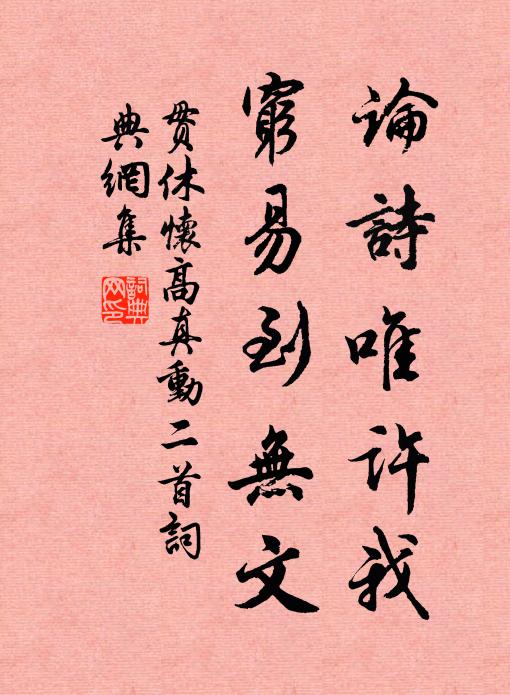 論詩唯許我
窮易到無文
貫休懷高真動二首詞
典網集
詞典網印